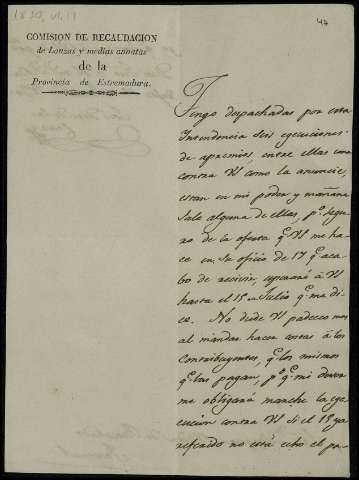 1830, VI, 19
47
COMISION DE RECAUDACION
de Lanzas y medias annatas
de la
Provincia de Estremadura.
Tengo despachadas por esta
Intendencia seis egecuciones
de apremios, entre ellas una
contra V como la anuncie,
estan en mi poder y mañana
sale alguna de ellas, p.º segu
ro de la oferta q.e V me ha
ce en su oficio de 17 q.e aca
bo de recivir, esperaré à V
hasta el 1º de Julio q.e me di
ce. No dude V padezco mas
al mandar hacer costas à los
Contribuyentes, q.e los mismos
q.e las pagan, p.º q.e mi dever
me obligará marche la ege
cucion contra V si el 1º ya
referido no está echo el pa-